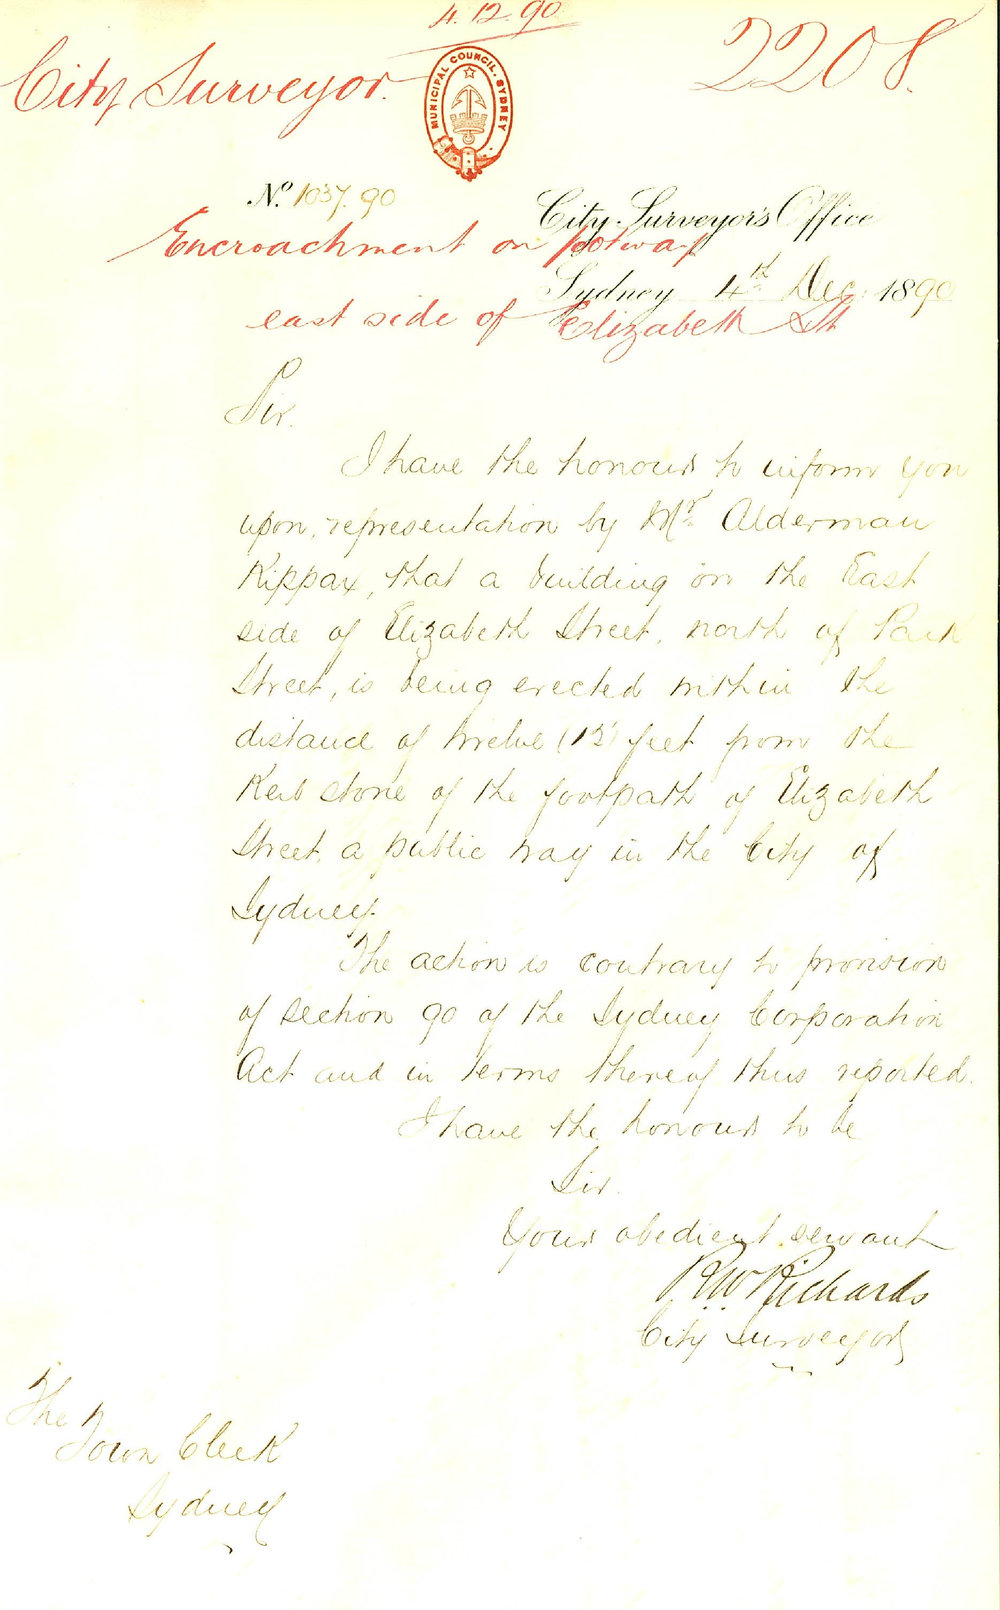 4.12.90
City Surveyor.
2208.
MUNICIPAL COUNCIL. SYDNEY
No. 1037.90
City Surveyor's Office
Encroachment on footway
Sydney 4th Dec. 1890
east side of Elizabeth St
Sir.
I have the honour to inform you
upon, representation by Mr. Alderman
Kippax, that a building on the East
side of Elizabeth Street, north of Park
Street, is being erected within the
distance of twelve (12) feet from the
Kerb stone of the footpath of Elizabeth
Street, a public way in the City of
Sydney.
The action is contrary to provision
of section 90 of the Sydney Corporation
Act and in terms thereof thus reported.
I have the honour to be
Sir.
Your obedient servant
R W Richards
City Surveyor
The
Town Clerk
Sydney